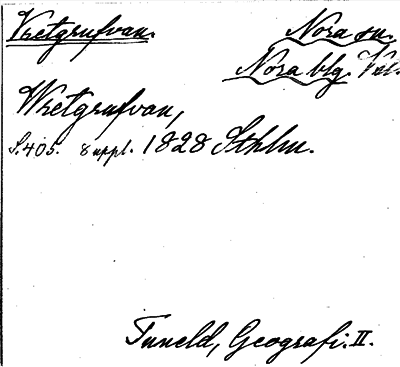 Vretgrufvan. Nora sn.
Nora blg. Vstl.
Wretgrufvan,
S. 405. suppl. 1828 Sthlm.
Tuneld, Geografi. II.